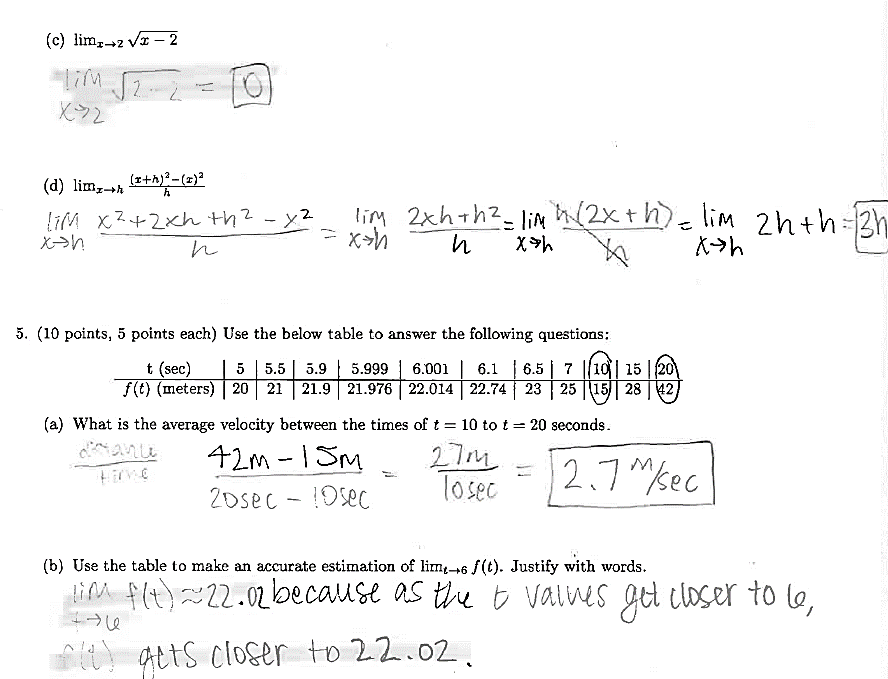 (c) lim_{x→2} √(x − 2)
lim_{x→2} √(2-2) = 0
(d) lim_{x→h} ((x+h)² − (x)²)/h
lim_{x→h} (x² + 2xh + h² − x²)/h = lim_{x→h} (2xh + h²)/h = lim_{x→h} h(2x + h)/h = lim_{x→h} 2h + h = 3h
5. (10 points, 5 points each) Use the below table to answer the following questions:
t (sec) | 5 | 5.5 | 5.9 | 5.999 | 6.001 | 6.1 | 6.5 | 7 | 10 | 15 | 20
f(t) (meters) | 20 | 21 | 21.9 | 21.976 | 22.014 | 22.74 | 23 | 25 | 15 | 28 | 42
(a) What is the average velocity between the times of t = 10 to t = 20 seconds.
distance/time (42m − 15m)/(20sec − 10sec) = 27m/10sec = 2.7 m/sec
(b) Use the table to make an accurate estimation of lim_{t→6} f(t). Justify with words.
lim_{t→6} f(t) ≈ 22.02 because as the t values get closer to 6,
f(t) gets closer to 22.02.